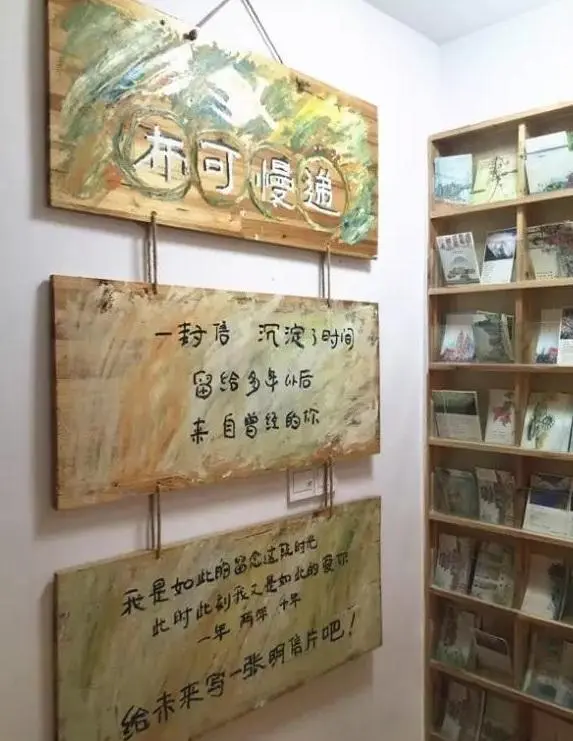 可慢递
一封信 沉淀了时间
留给多年以后
来自曾经的你
我是如此的留念这段时光
此时此刻我又是如此的爱你
一年 两年 十年
给未来写一张明信片吧！